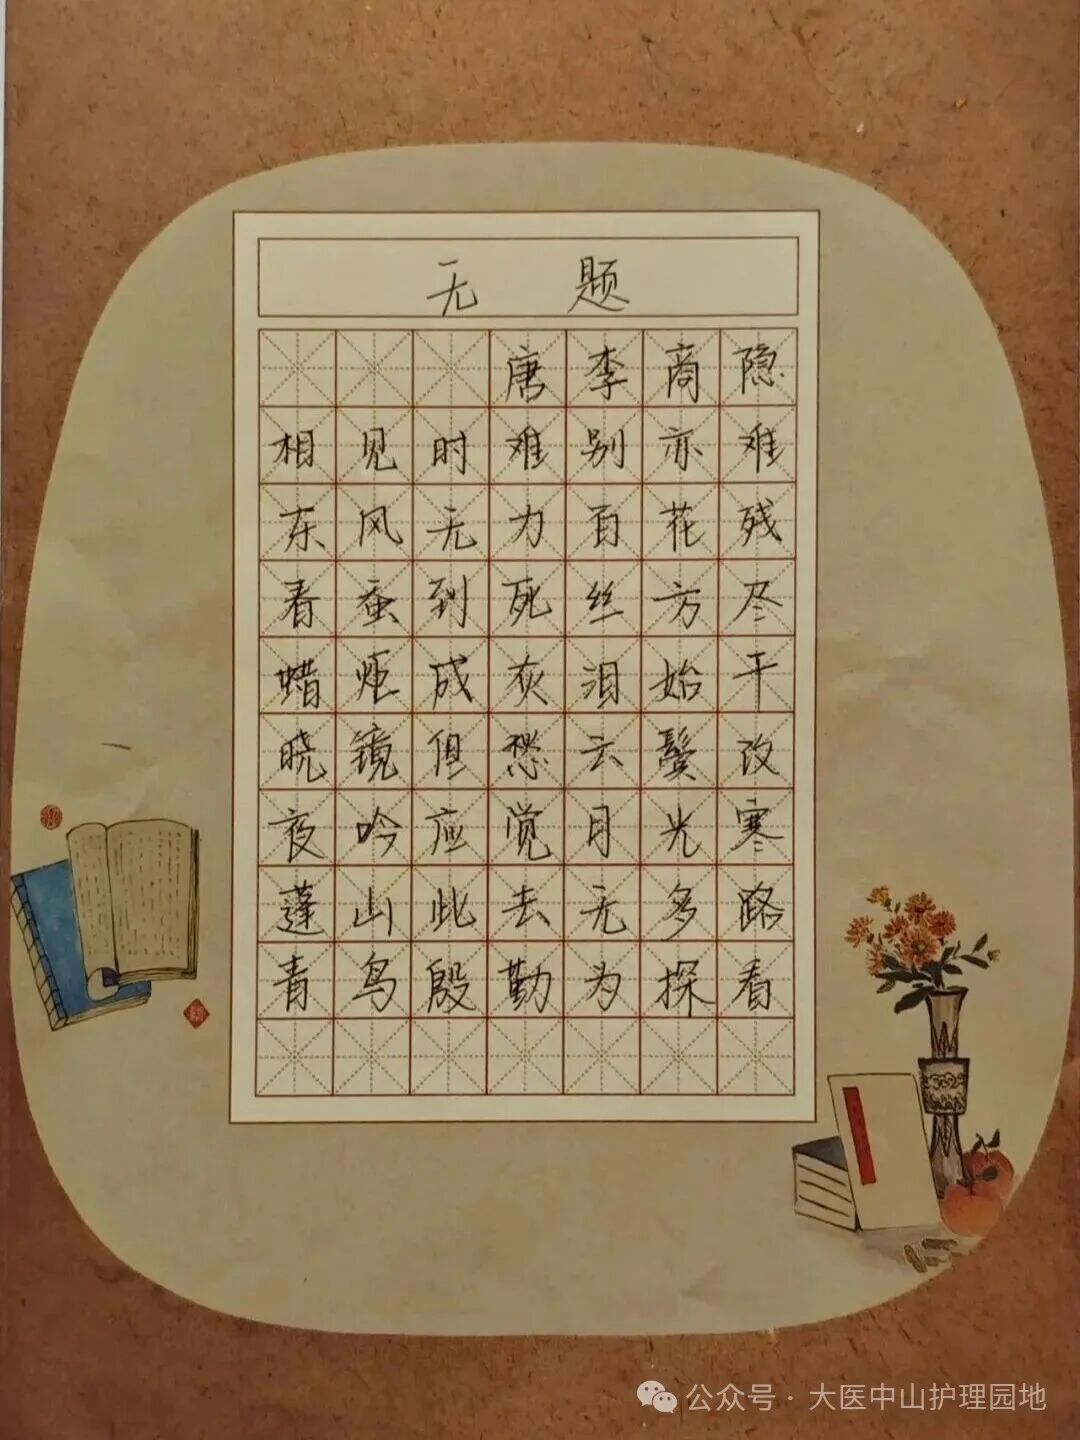 无题
唐李商隐
相见时难别亦难
东风无力百花残
看蚕到死丝方尽
蜡炬成灰泪始干
晓镜但愁云鬓改
夜吟应觉月光寒
蓬山此去无多路
青鸟殷勤为探看
公众号·大医中山护理园地